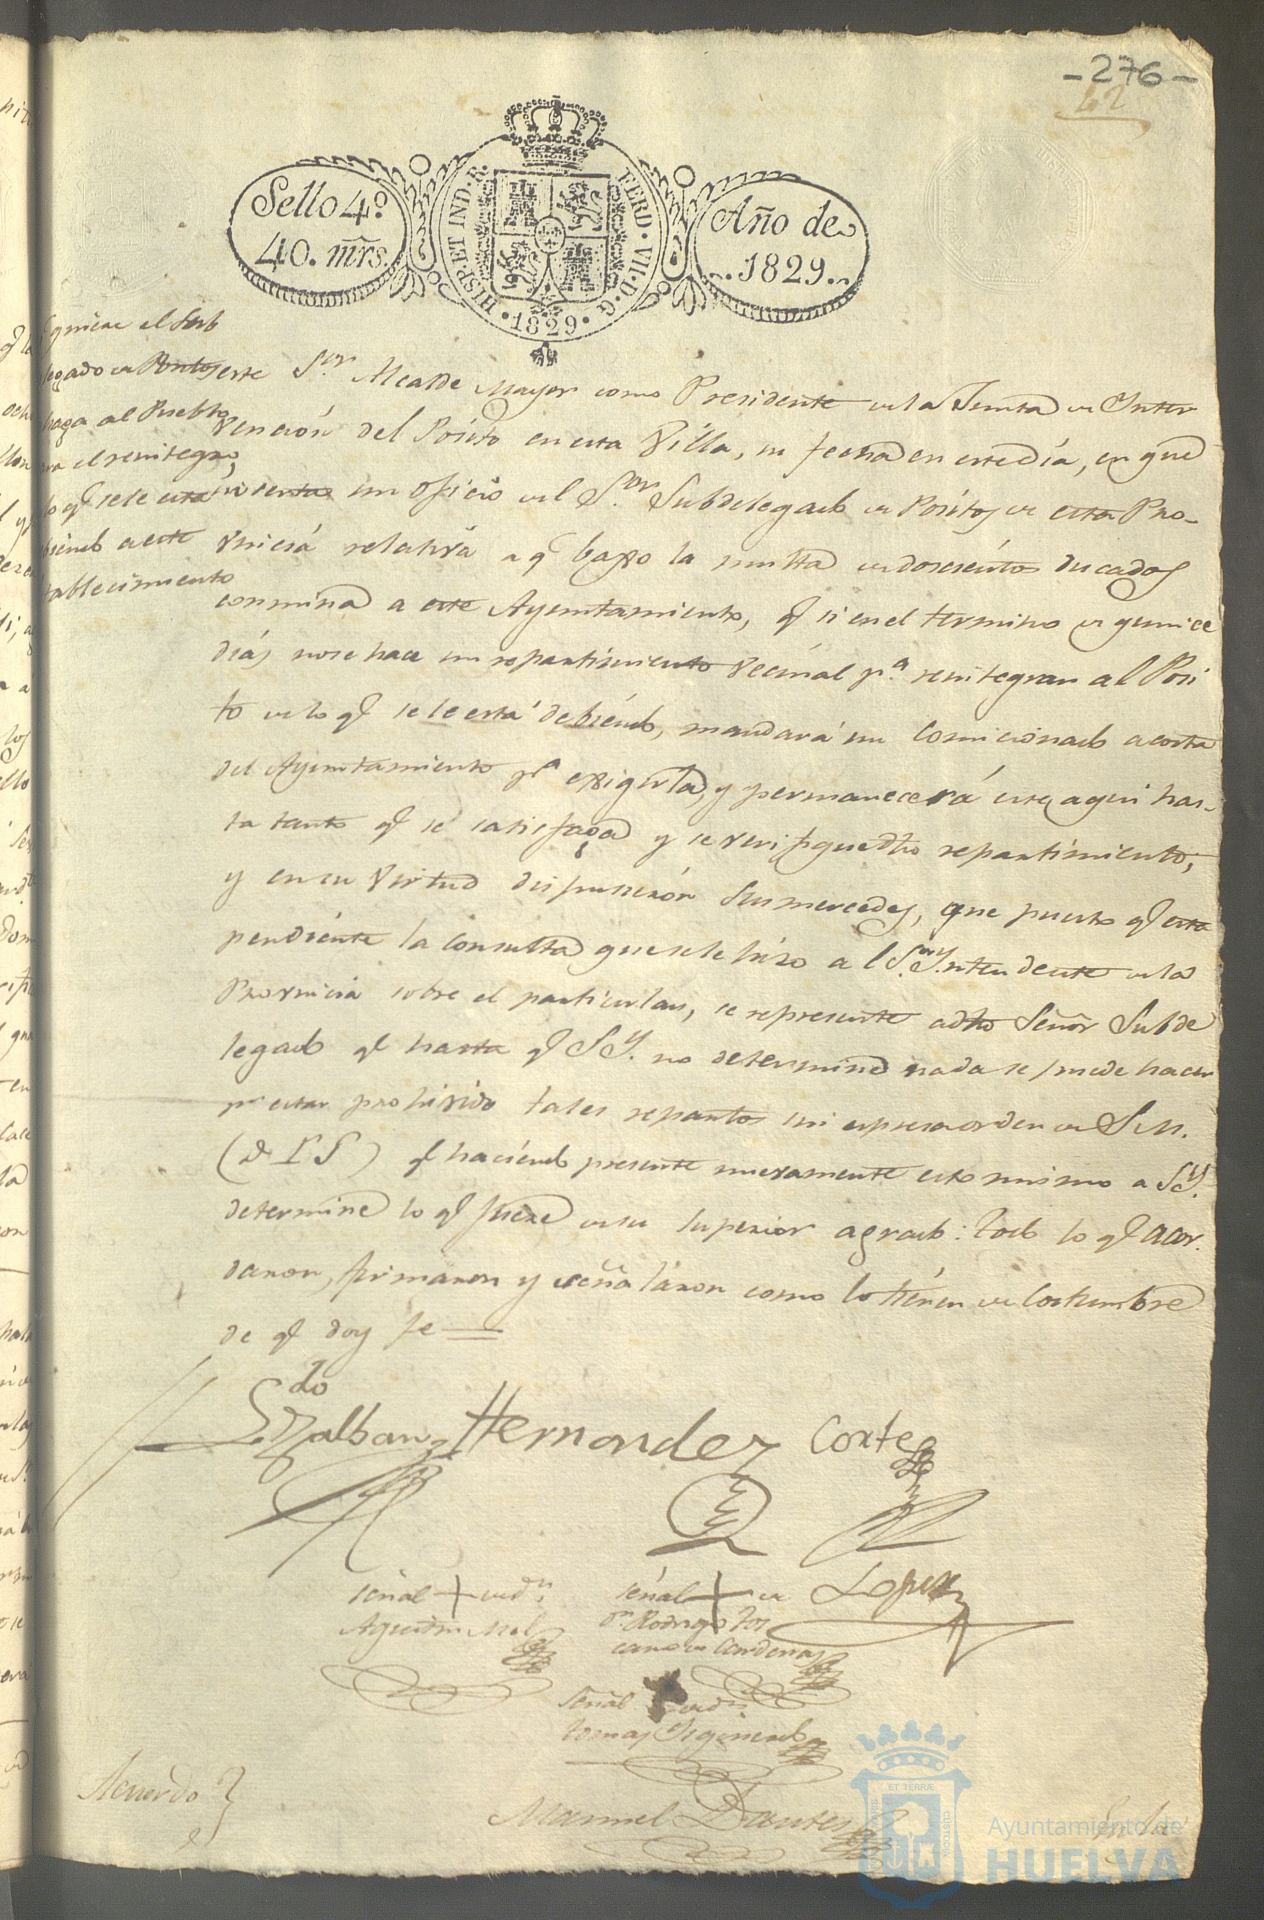 -276-
62
Sello 4º
40. mrs.
HISP. ET IND. R.
FERD. VII. D. G.
1829
Año de
1829
quiere el Sub
legado de Positos
haga al Pueblo
el reintegro,
lo q.e se le está
debiendo a este
tablecimiento
este S.or Alcalde Mayor como Presidente de la Junta de Inter
vención del Pósito en esta Villa, su fecha en este dia, en que
inserta un oficio del S.or Subdelegado de Pósitos de esta Pro-
vincia relativa a q.e baxo la multa de doscientos ducados
conmina a este Ayuntamiento, q.e si en el termino de quince
dias no se hace un repartimiento vecinal p.a reintegrar al Posi
to de lo q.e se le está debiendo, mandará un Comicionado a costa
del Ayuntamiento p.a exigirla, y permanecerá este aqui has-
ta tanto q.e se satisfaga y se verifique dho repartimiento;
y en su virtud dispusieron Sus mercedes, que puesto q.e esta
pendiente la consulta que se le hizo al S.or Yntendente de la
Provincia sobre el particular, se represente a dho Señor Subde
legado q.e hasta q.e S.Y. no determine nada se puede hacer
p.r estar prohivido tales repartos sin espresa orden de S.M.
(D. L. G.) q.e haciendo presente nuevamente esto mismo a S.Y.
determine lo q.e fuere de su superior agrado: todo lo q.e acor.
daron, firmaron y señaláron como lo tienen de Costumbre
de q.e doy fe
Ldo
Hernandez Corte
señal + de d.n
Agustin Mel
señal + de
d.n Rodrigo Tos
cano de Cardenas
Lopez
señal + de d.n
Tomas Figueredo
Manuel Dantes
Acuerdo
En la
ET TERRÆ
CUSTODIA
Ayuntamiento de
HUELVA